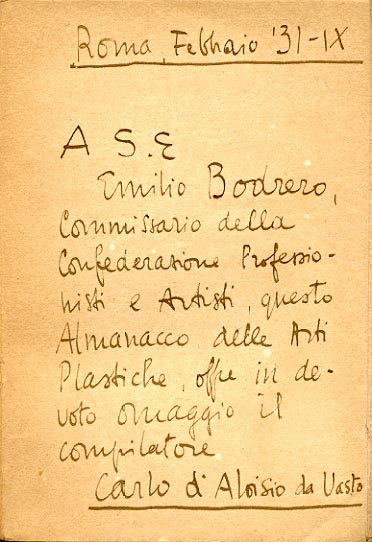 Roma, Febbraio '31-IX
A S.E
Emilio Bodrero,
Commissario della
Confederazione Professio-
nisti e Artisti, questo
Almanacco delle Arti
Plastiche, offre in de-
voto omaggio il
compilatore
Carlo d'Aloisio da Vasto